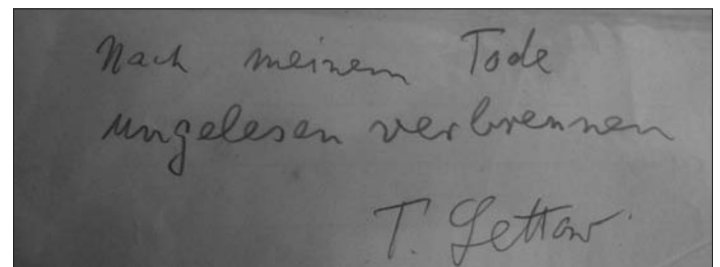 Nach meinem Tode
ungelesen verbrennen
T. Lettow